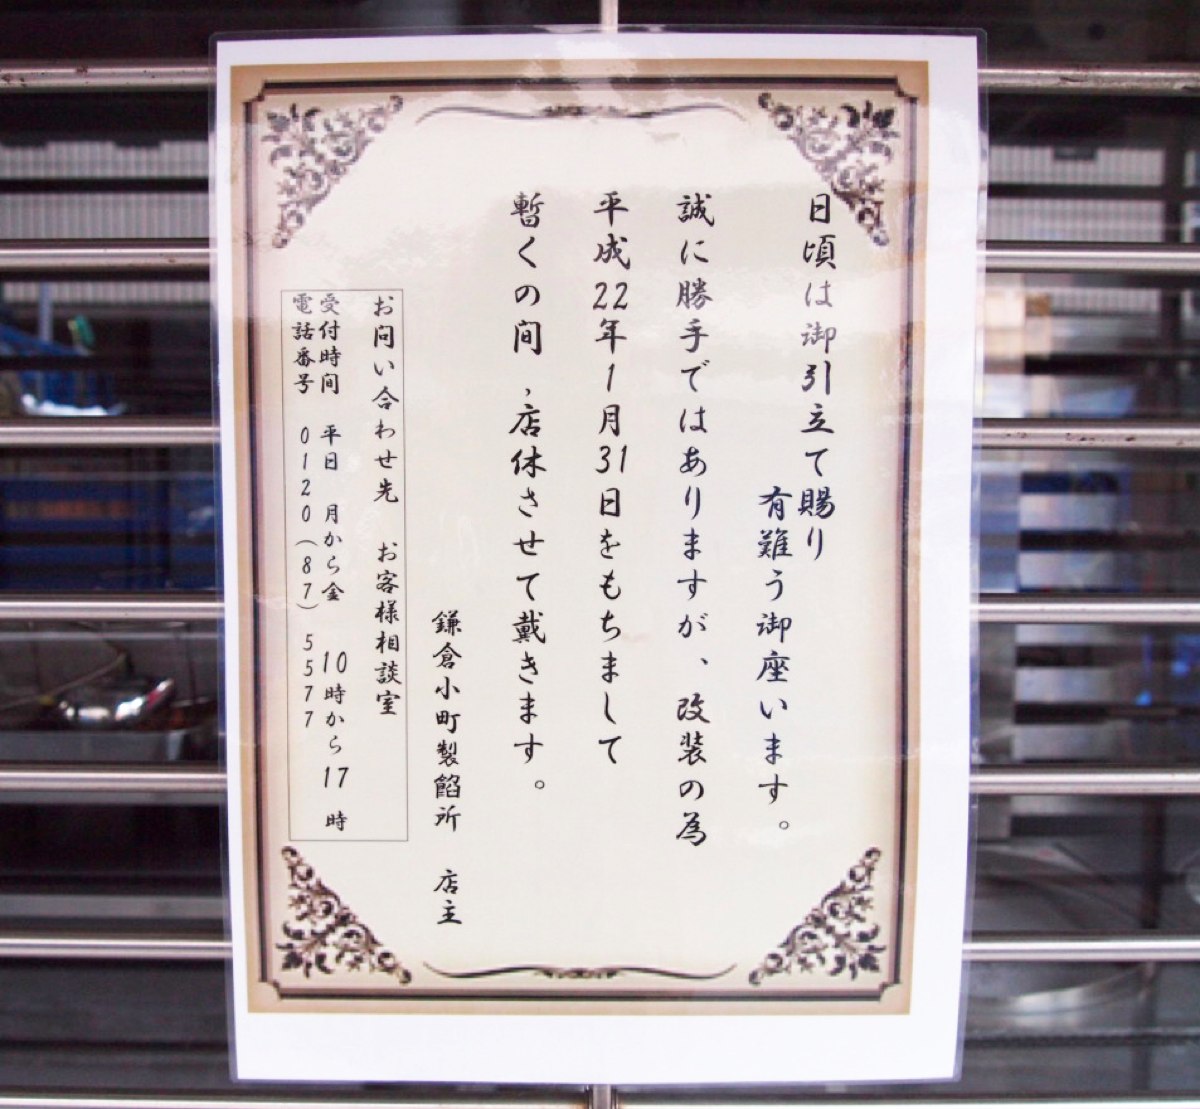 日頃は御引立て賜り
有難う御座います。
誠に勝手ではありますが、改装の為
平成22年1月31日をもちまして
暫くの間,店休させて戴きます。
鎌倉小町製餡所　店主
お問い合わせ先　お客様相談室
受付時間　平日　月から金　10時から17時
電話番号　0120(87)5577